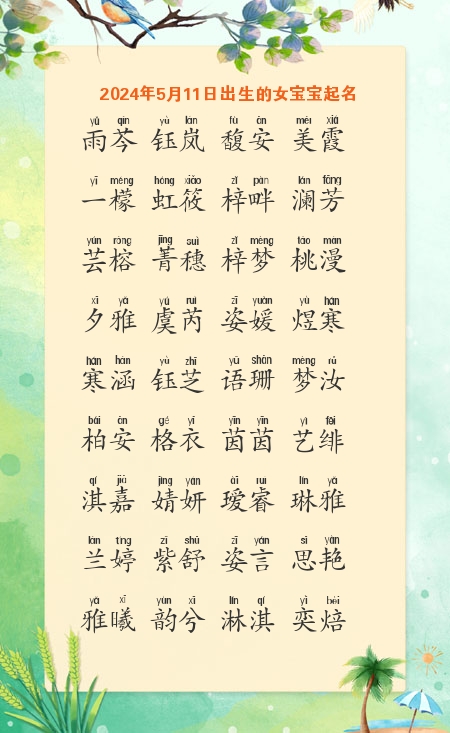 2024年5月11日出生的女宝宝起名
yǔ qín yù lán fù ān měi xiá
雨芩 钰岚 馥安 美霞
yī méng hóng xiǎo zǐ pàn lán fāng
一檬 虹筱 梓畔 澜芳
yún róng jīng suì zǐ mèng táo màn
芸榕 菁穗 梓梦 桃漫
xī yǎ yú ruì zī yuàn yù hán
夕雅 虞芮 姿媛 煜寒
hán hán yù zhī yǔ shān mèng rǔ
寒涵 钰芝 语珊 梦汝
bǎi ān gé yī yīn yīn yì fēi
柏安 格衣 茵茵 艺绯
qí jiā jìng yán ài ruì lín yǎ
淇嘉 婧妍 瑷睿 琳雅
lán tíng zǐ shū zī yán sī yàn
兰婷 紫舒 姿言 思艳
yǎ xī yùn xī lín qí yì bèi
雅曦 韵兮 淋淇 奕焙